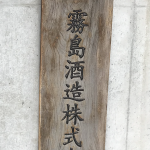 霧島酒造株式